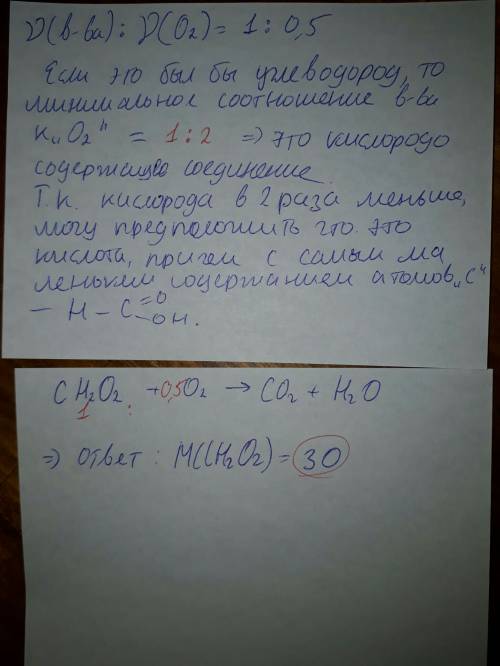 ν(в-ва) : ν(O₂) = 1 : 0,5
Если это был бы углеводород, то
минимальное соотношение в-ва
к „O₂" = 1:2 ⇒ это кислородо
содержащее соединение.
Т.к. кислорода в 2 раза меньше,
могу предположить что. это
кислота, причем с самым ма
леньким содержанием атомов „C"
– H – C =O –OH.
CH₂O₂ + 0,5O₂ → CO₂ + H₂O
1 :
⇒ Ответ : M(CH₂O₂) = 30